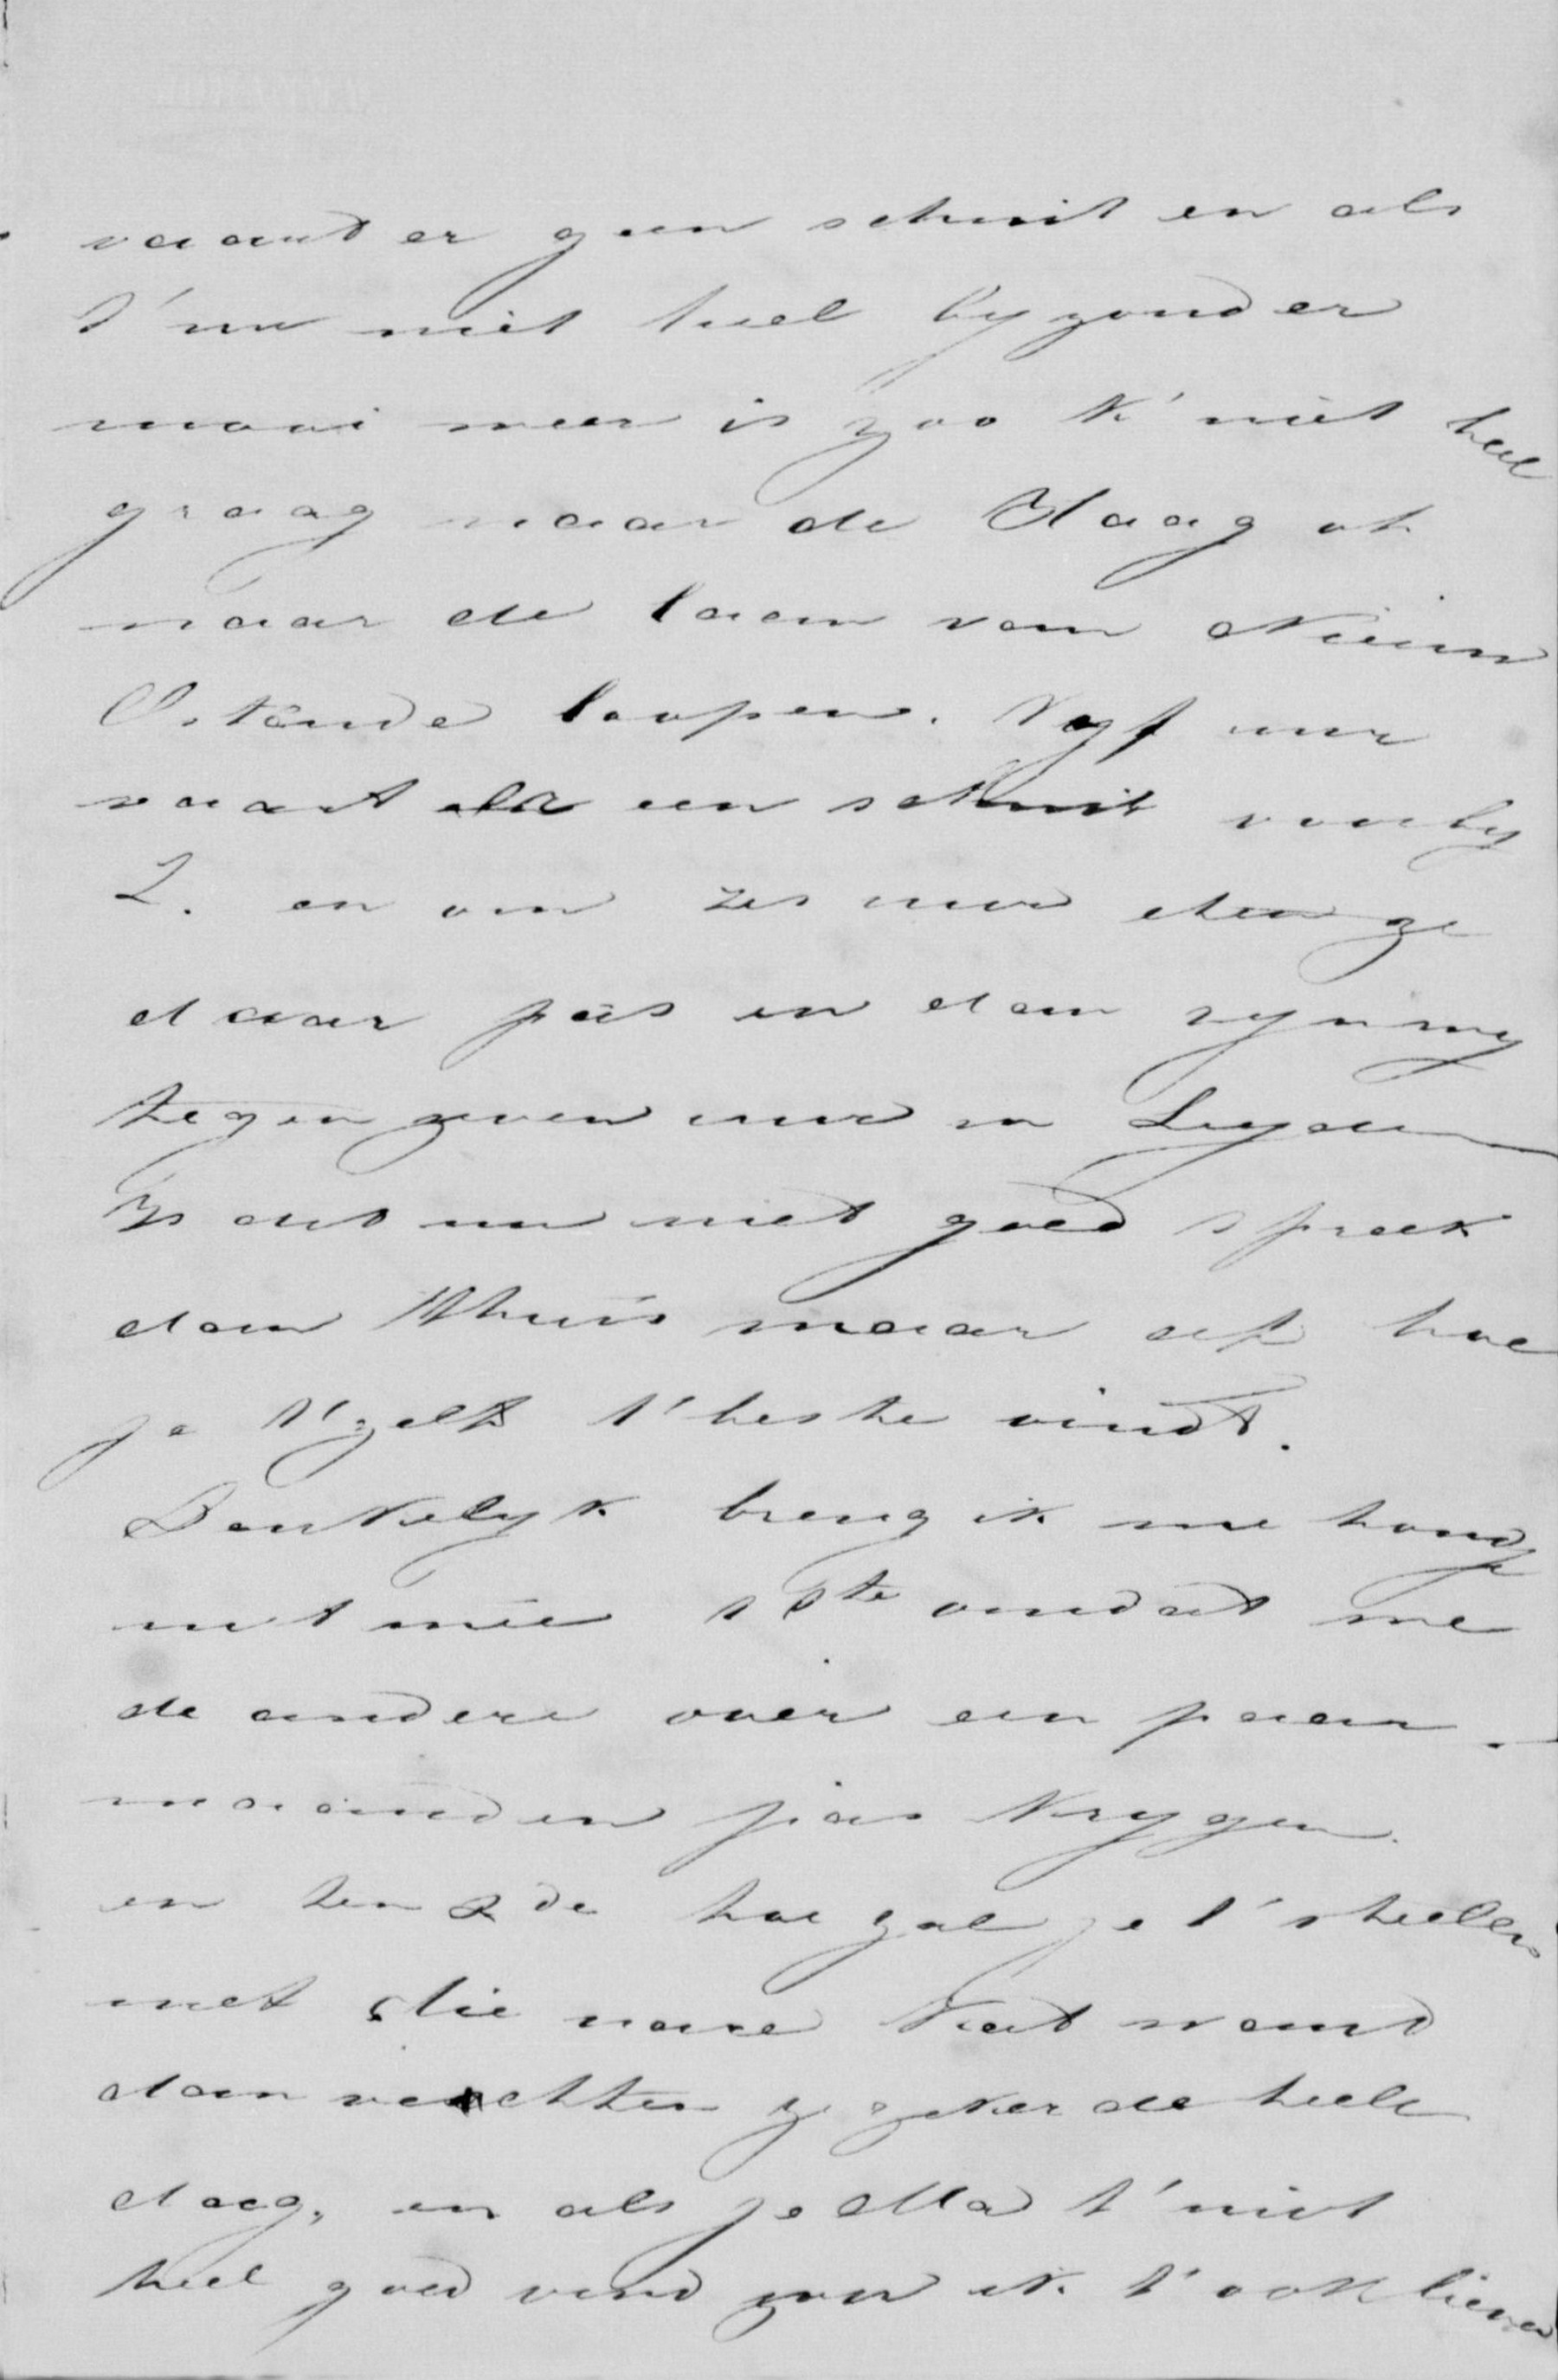 vaart er geen schuit en als
t'nu niet heel byzonder
mooi meer is zoo k' niet heel
graag naar de Haag of
naar de laan van Nieuw
Ostende loopen. Vyf uur
vaart er een schuit voorby
L. en om zes uur eten ze
daar pas en dan zyn wy
tegen zeven uur in Leyden
Is dat nu niet goed spreek
dan thuis maar af hoe
je t'zelf t'beste vindt.
Denkelyk breng ik me hondj
niet mee 1ste omdat me
de andere over een paar
maanden pas krygen
en ten 2de hoe zal je t'stellen
met die nare Kat want
dan vechten ze zeker de heele
dag, en als je Ma t'niet
heel goed vind zou ik t'ook liever